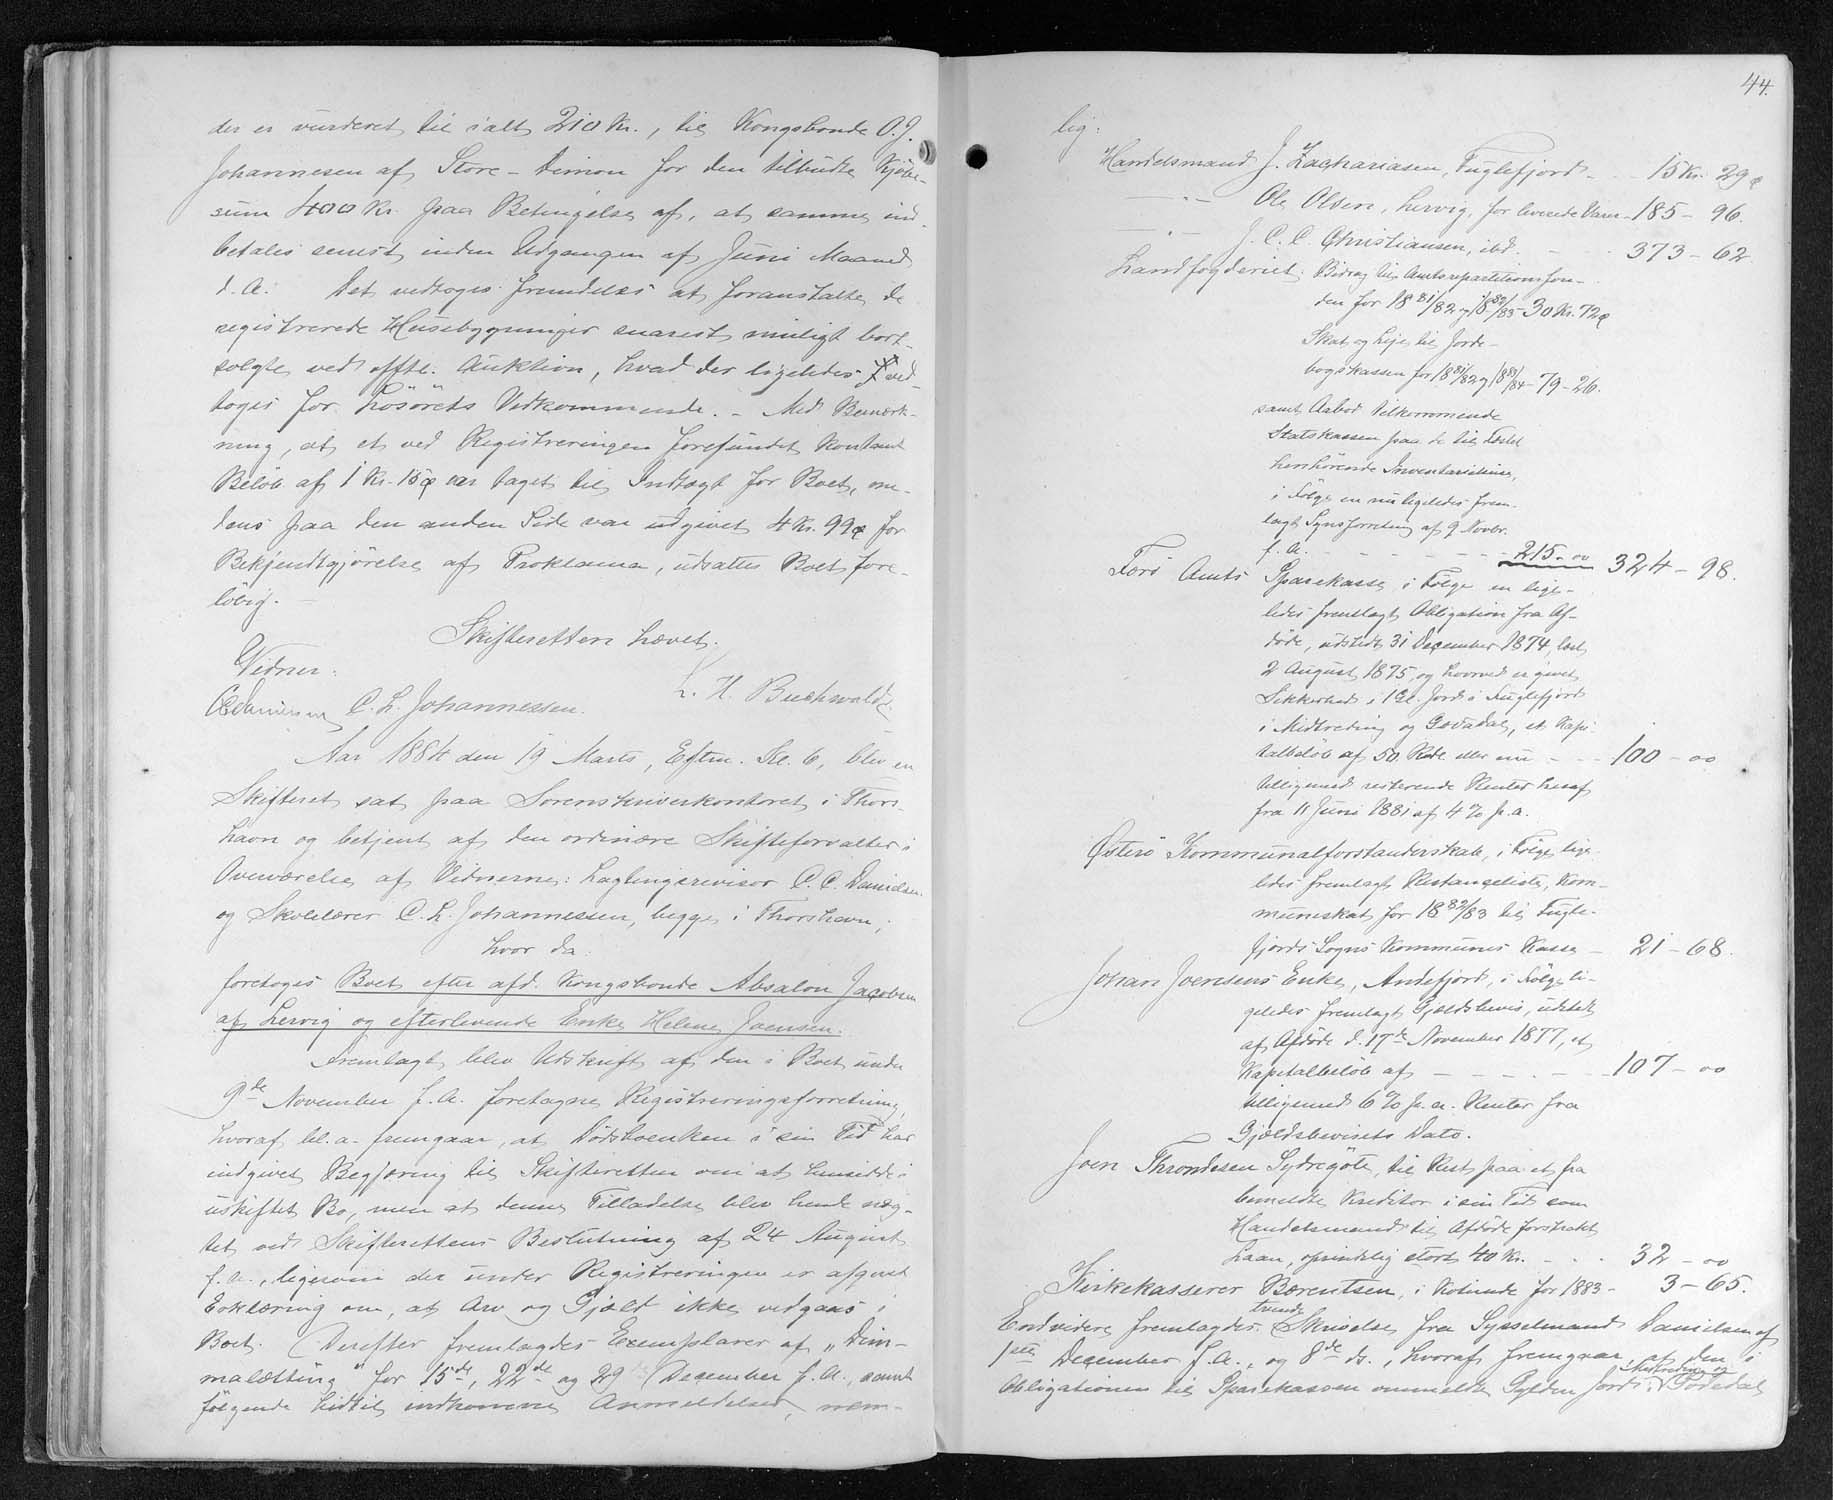 der er vurderet til ialt 210 Kr., til Kongsbonde O.J.
Johannesen af Store-Dimon for den tilbudte Kjøbe-
sum 400 Kr. paa Betingelse af, at samme ind-
betales senest inden Udgangen af Juni Maaned
d. A. Det vedtoges fremdeles at foranstalte de
registrerede Husebygninger snarest muligt bort-
solgte ved offtl. Auktion, hvad der ligeledes ved-
toges for Løsørets Vedkommende. - Med Bemærk-
ning, at et ved Registreringen forefundet kontant
Beløb af 1 Kr. 15 ø var taget til Indtægt for Boet, me-
dens paa den anden Side var udgivet 4 Kr. 99 ø for
Bekjendtgjørelse af Proklama, udsattes Boet fore-
løbig.
Skifteretten hævet.
Vidner:
C. Danielsen C. L. Johannessen. L. H. Buchwaldt
Aar 1884 den 19 Marts, Eftm. Kl. 6, blev en
Skifteret sat paa Sorenskriverkontoret i Thors-
havn og betjent af den ordinære Skifteforvalter i
Overværelse af Vidnerne: Lagtingsrevisor C. C. Danielsen
og Skolelærer C. L. Johannessen, begge i Thorshavn,
hvor da
foretoges Boet efter afd. Kongsbonde Absalon Jacobsen
af Lervig og efterlevende Enke Helene Joensen.
Fremlagt blev Udskrift af den i Boet under
9de November f. A. foretagne Registreringsforretning,
hvoraf bl. a. fremgaar, at Dødsboenken i sin Tid har
indgivet Begjæring til Skifteretten om at hensidde i
uskiftet Bo, men at denne Tilladelse blev hende næg-
tet ved Skifterettens Beslutning af 24 August
f. A., ligesom der under Registreringen er afgivet
Erklæring om, at Arv og Gjæld ikke vedgaas i
Boet. Derefter fremlagdes Exemplarer af "Dim-
malætting" for 15de, 22de og 29 December f. A., samt
følgende hidtil indkomne Anmeldelser, nem-
44.
lig:
Handelsmand J. Zachariasen, Fuglefjord - 15 Kr. 29 ø
—"— Ole Olsen, Lervig, for leverede Varer - 185 - 96.
—"— J. C. C. Christiansen, ibd. - 373 - 62
Landfogderiet: Bidrag til Amtsrepartitionsfon-
den for 1881/82 og 1882/83 - 30 Kr. 72 ø
Skat og Leje til Jorde-
bogskassen for 1881/82 og 1883/84 - 79 - 26.
samt Aabod tilkommende
Statskassen paa de til Fæstet
henhørende Inventariehuse,
i Følge en nu ligeledes frem-
lagt Synsforretning af 9 Novbr.
f. A. - - - - 215 - 00 324 - 98.
Færø Amts Sparekasse, i Følge en lige-
ledes fremlagt Obligation fra Af-
døde, udstedt 31 December 1874, læst
2 August 1875, og hvorved er givet
Sikkerhed i 1 Gl. Jord i Fuglefjord
i Midtreding og Godadal, et Kapi-
talbeløb af 50 Rdl. eller nu - - 100 - 00
tilligemed resterende Renter heraf
fra 11 Juni 1881 af 4 % p. a.
Østerø Kommunalforstanderskab, i Følge lige-
ledes fremlagt Restanceliste, Kom-
muneskat for 1882/83 til Fugle-
fjords Sogns Kommunes Kasse - 21 - 68.
Johan Joensens Enke, Andefjord, i Følge li-
geledes fremlagt Gjældsbevis, udstedt
af Afdøde d. 17de November 1877, et
Kapitalbeløb af - - - - 107 - 00
tilligemed 6 % p. a. Renter fra
Gjældsbevisets Dato.
Joen Throndesen Sydregöte, til Rest paa et fra
bemeldte Kreditor i sin Tid som
Handelsmand til Afdøde forstrakt
Laan, oprindelig stort 40 Kr. - - 32 - 00
Kirkekasserer Bærentsen, i Kotiende for 1883 - 3 - 65.
Endvidere fremlagdes tvende Skrivelser fra Sysselmand Danielsen af
1ste December f. A., og 8de ds., hvoraf fremgaar, at den i
Obligationen til Sparekassen ommeldte Gylden Jord i Midtreding og Godedal